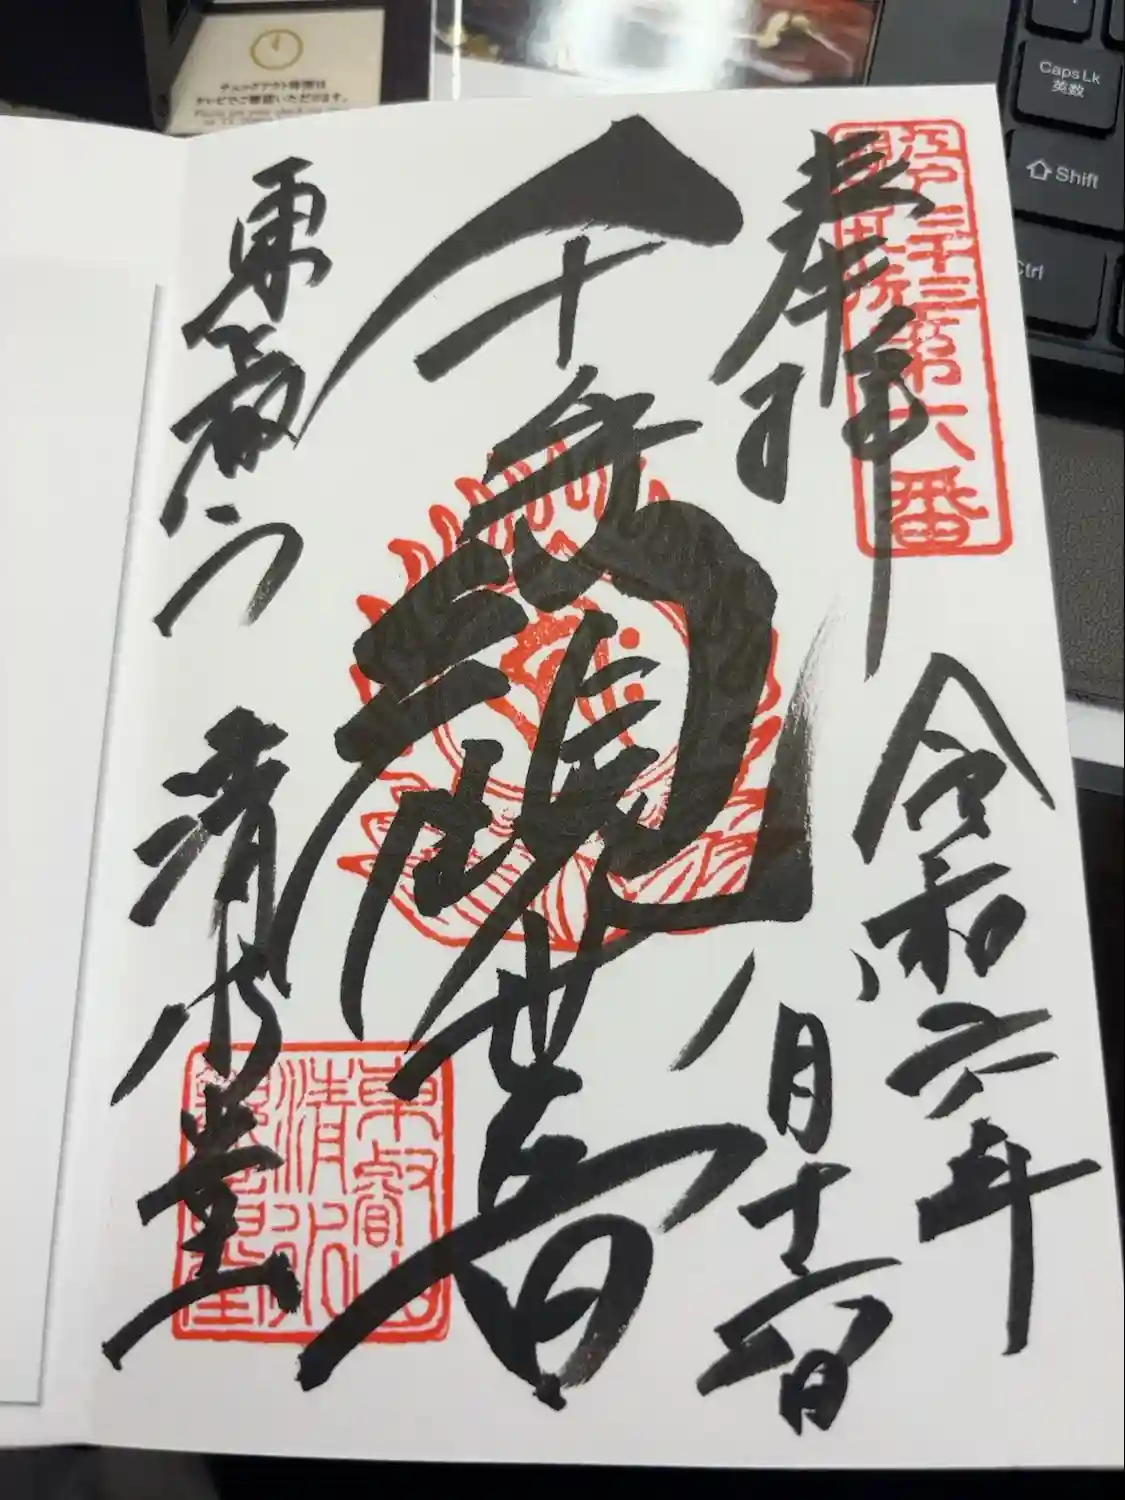 チェックアウト時間は
テレビでご確認いただけます。
Caps Lk
英数
Shift
Ctrl
江戸三十三第六番
奉拝
令和六年
月十二日
千手観世音
東叡山
清水堂
東叡山
清水